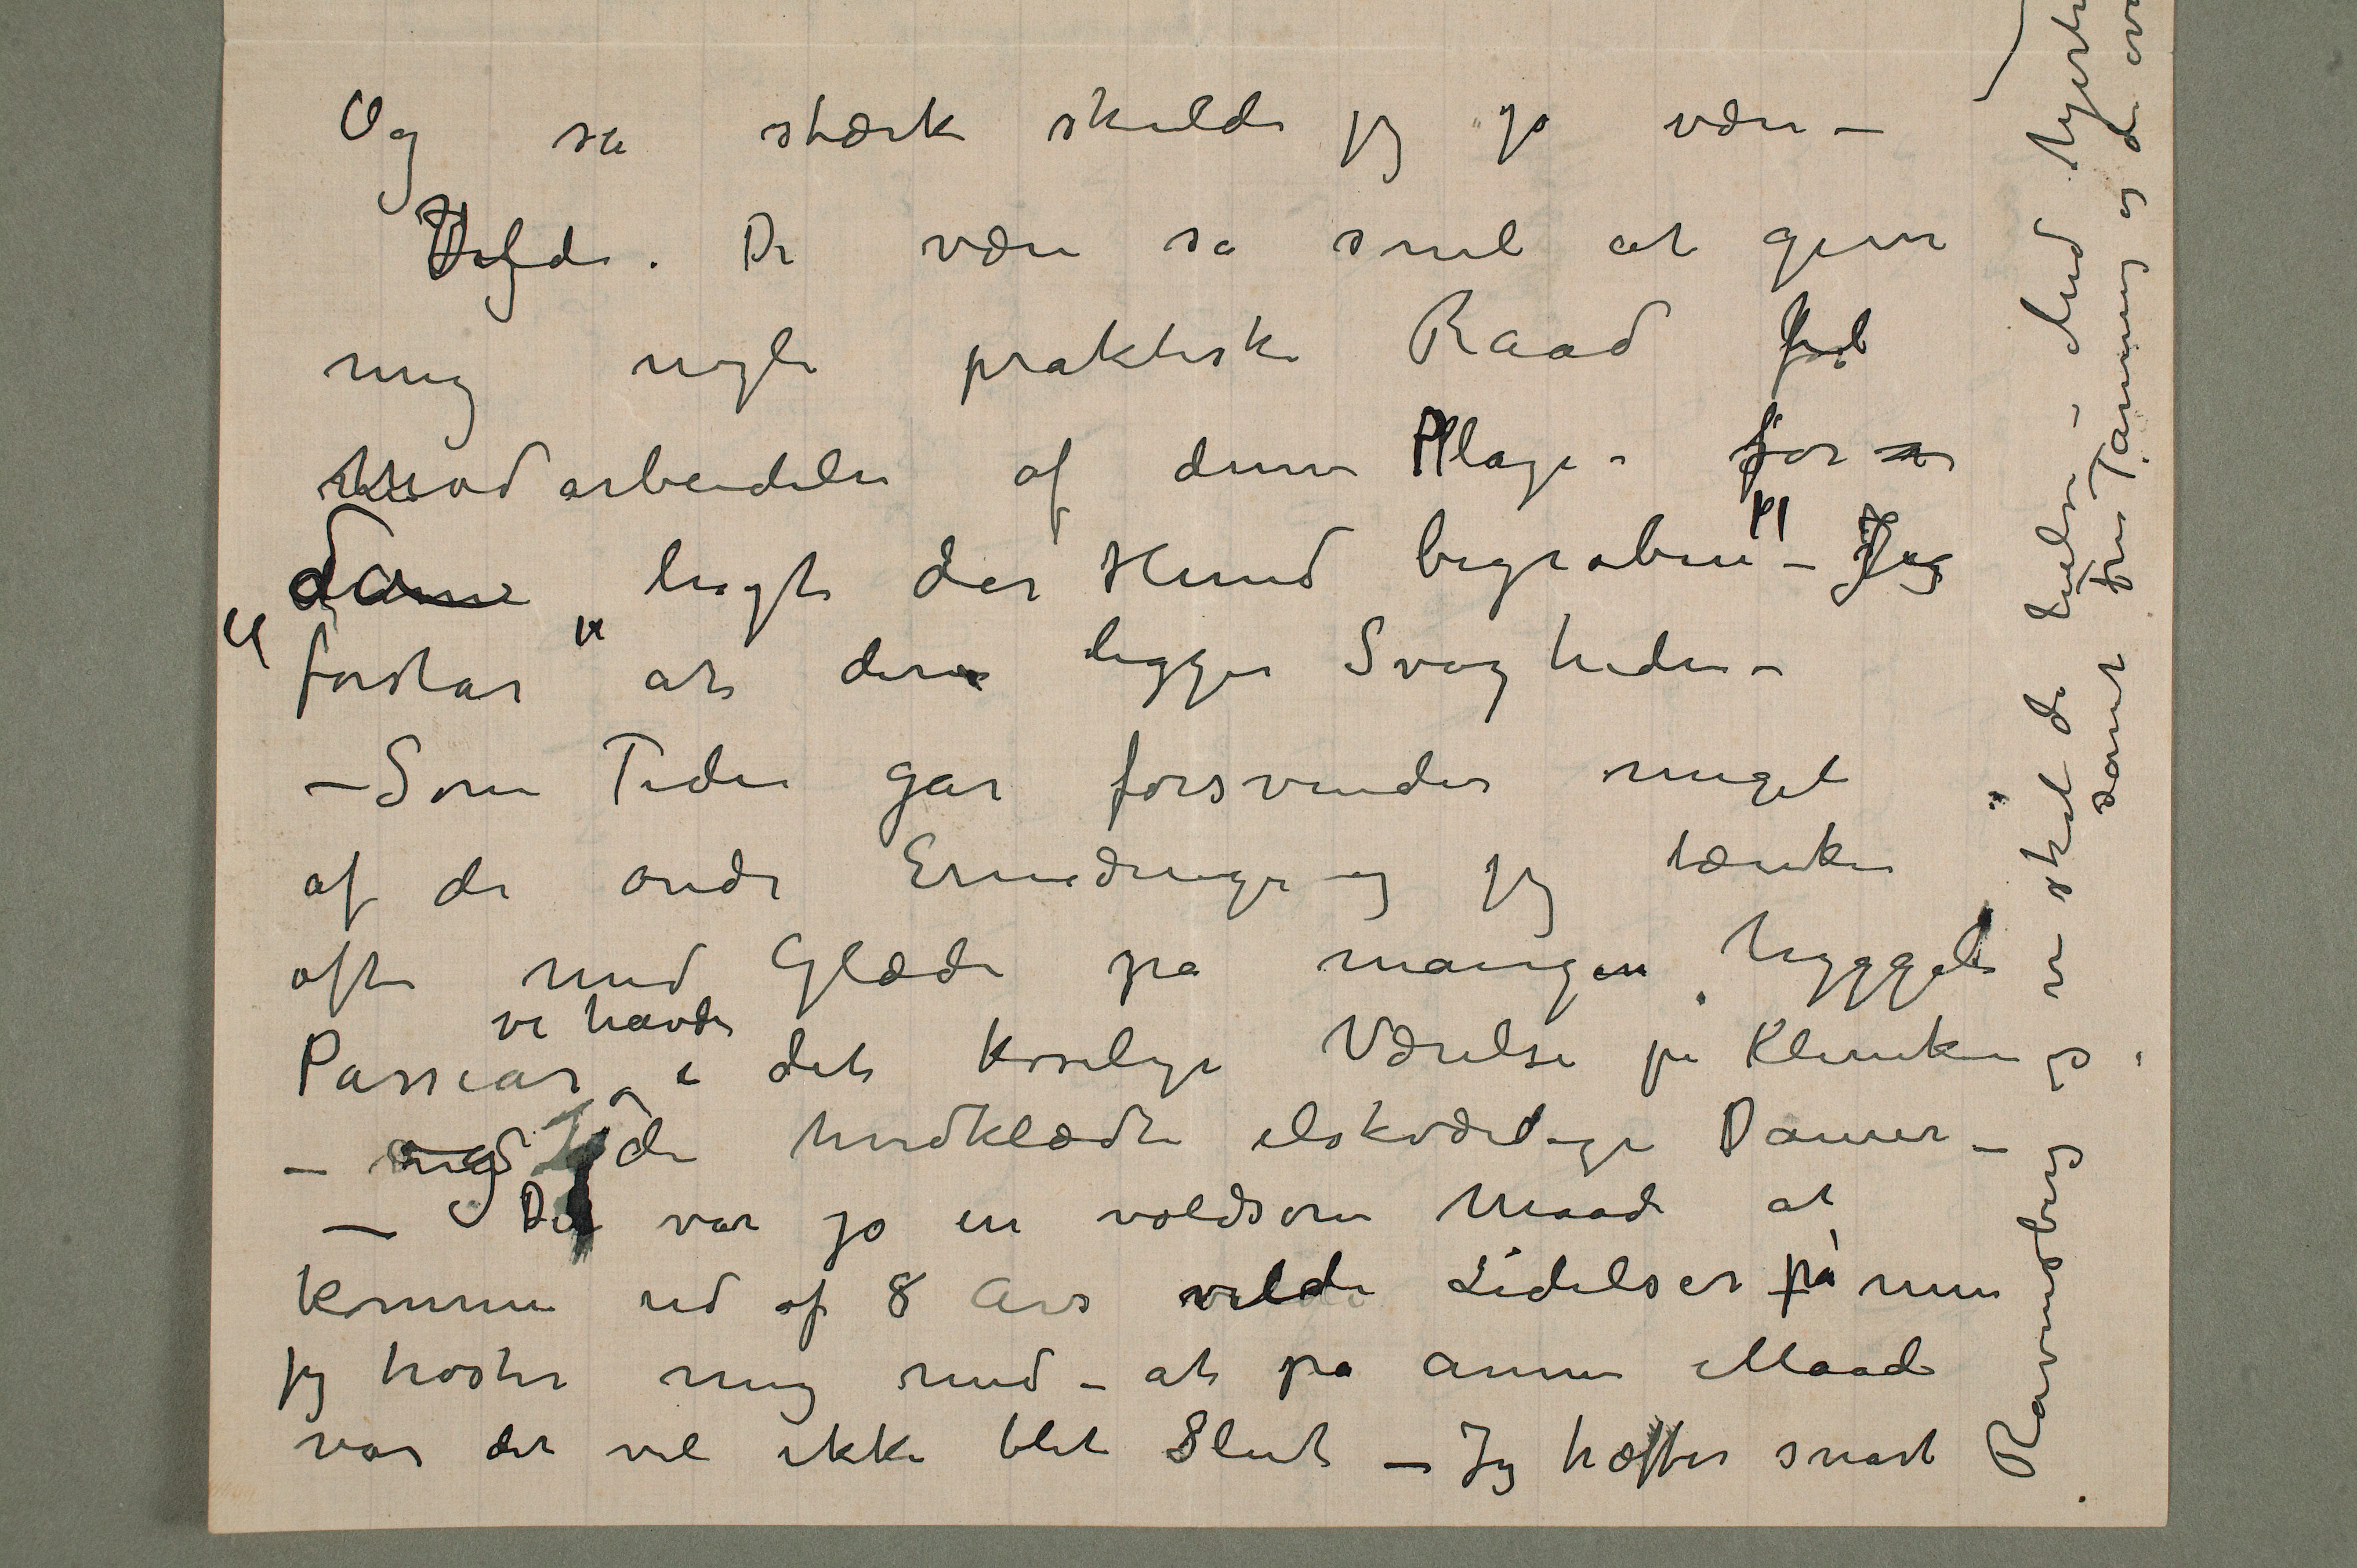 Og så stærk skulde jeg jo være –
Vilde De være så snil at give
mig nogle praktiske Raad for
Modarbeidelse af denne Plage – for
da „ligt der Hund begraben" – Jeg
forstår at der ligger Svagheden –
– Som Tiden går forsvinder meget
af de onde Erindringe og jeg tænker
ofte med Glæde på mangen hyggeli
Passiar vi havde i det koselige Værelse på Kliniken
– og de hvidklædte elskværdige Damer –
– Det var jo en voldsom Maade at
komme ud af 8 Års vilde Lidelser på men
jeg trøster mig med – at på annen Maade
var det vel ikke blet Slut – Jeg træffer snart
Ravensberg og vi skal da hilse – Med hjert
samt fru Tanning og de